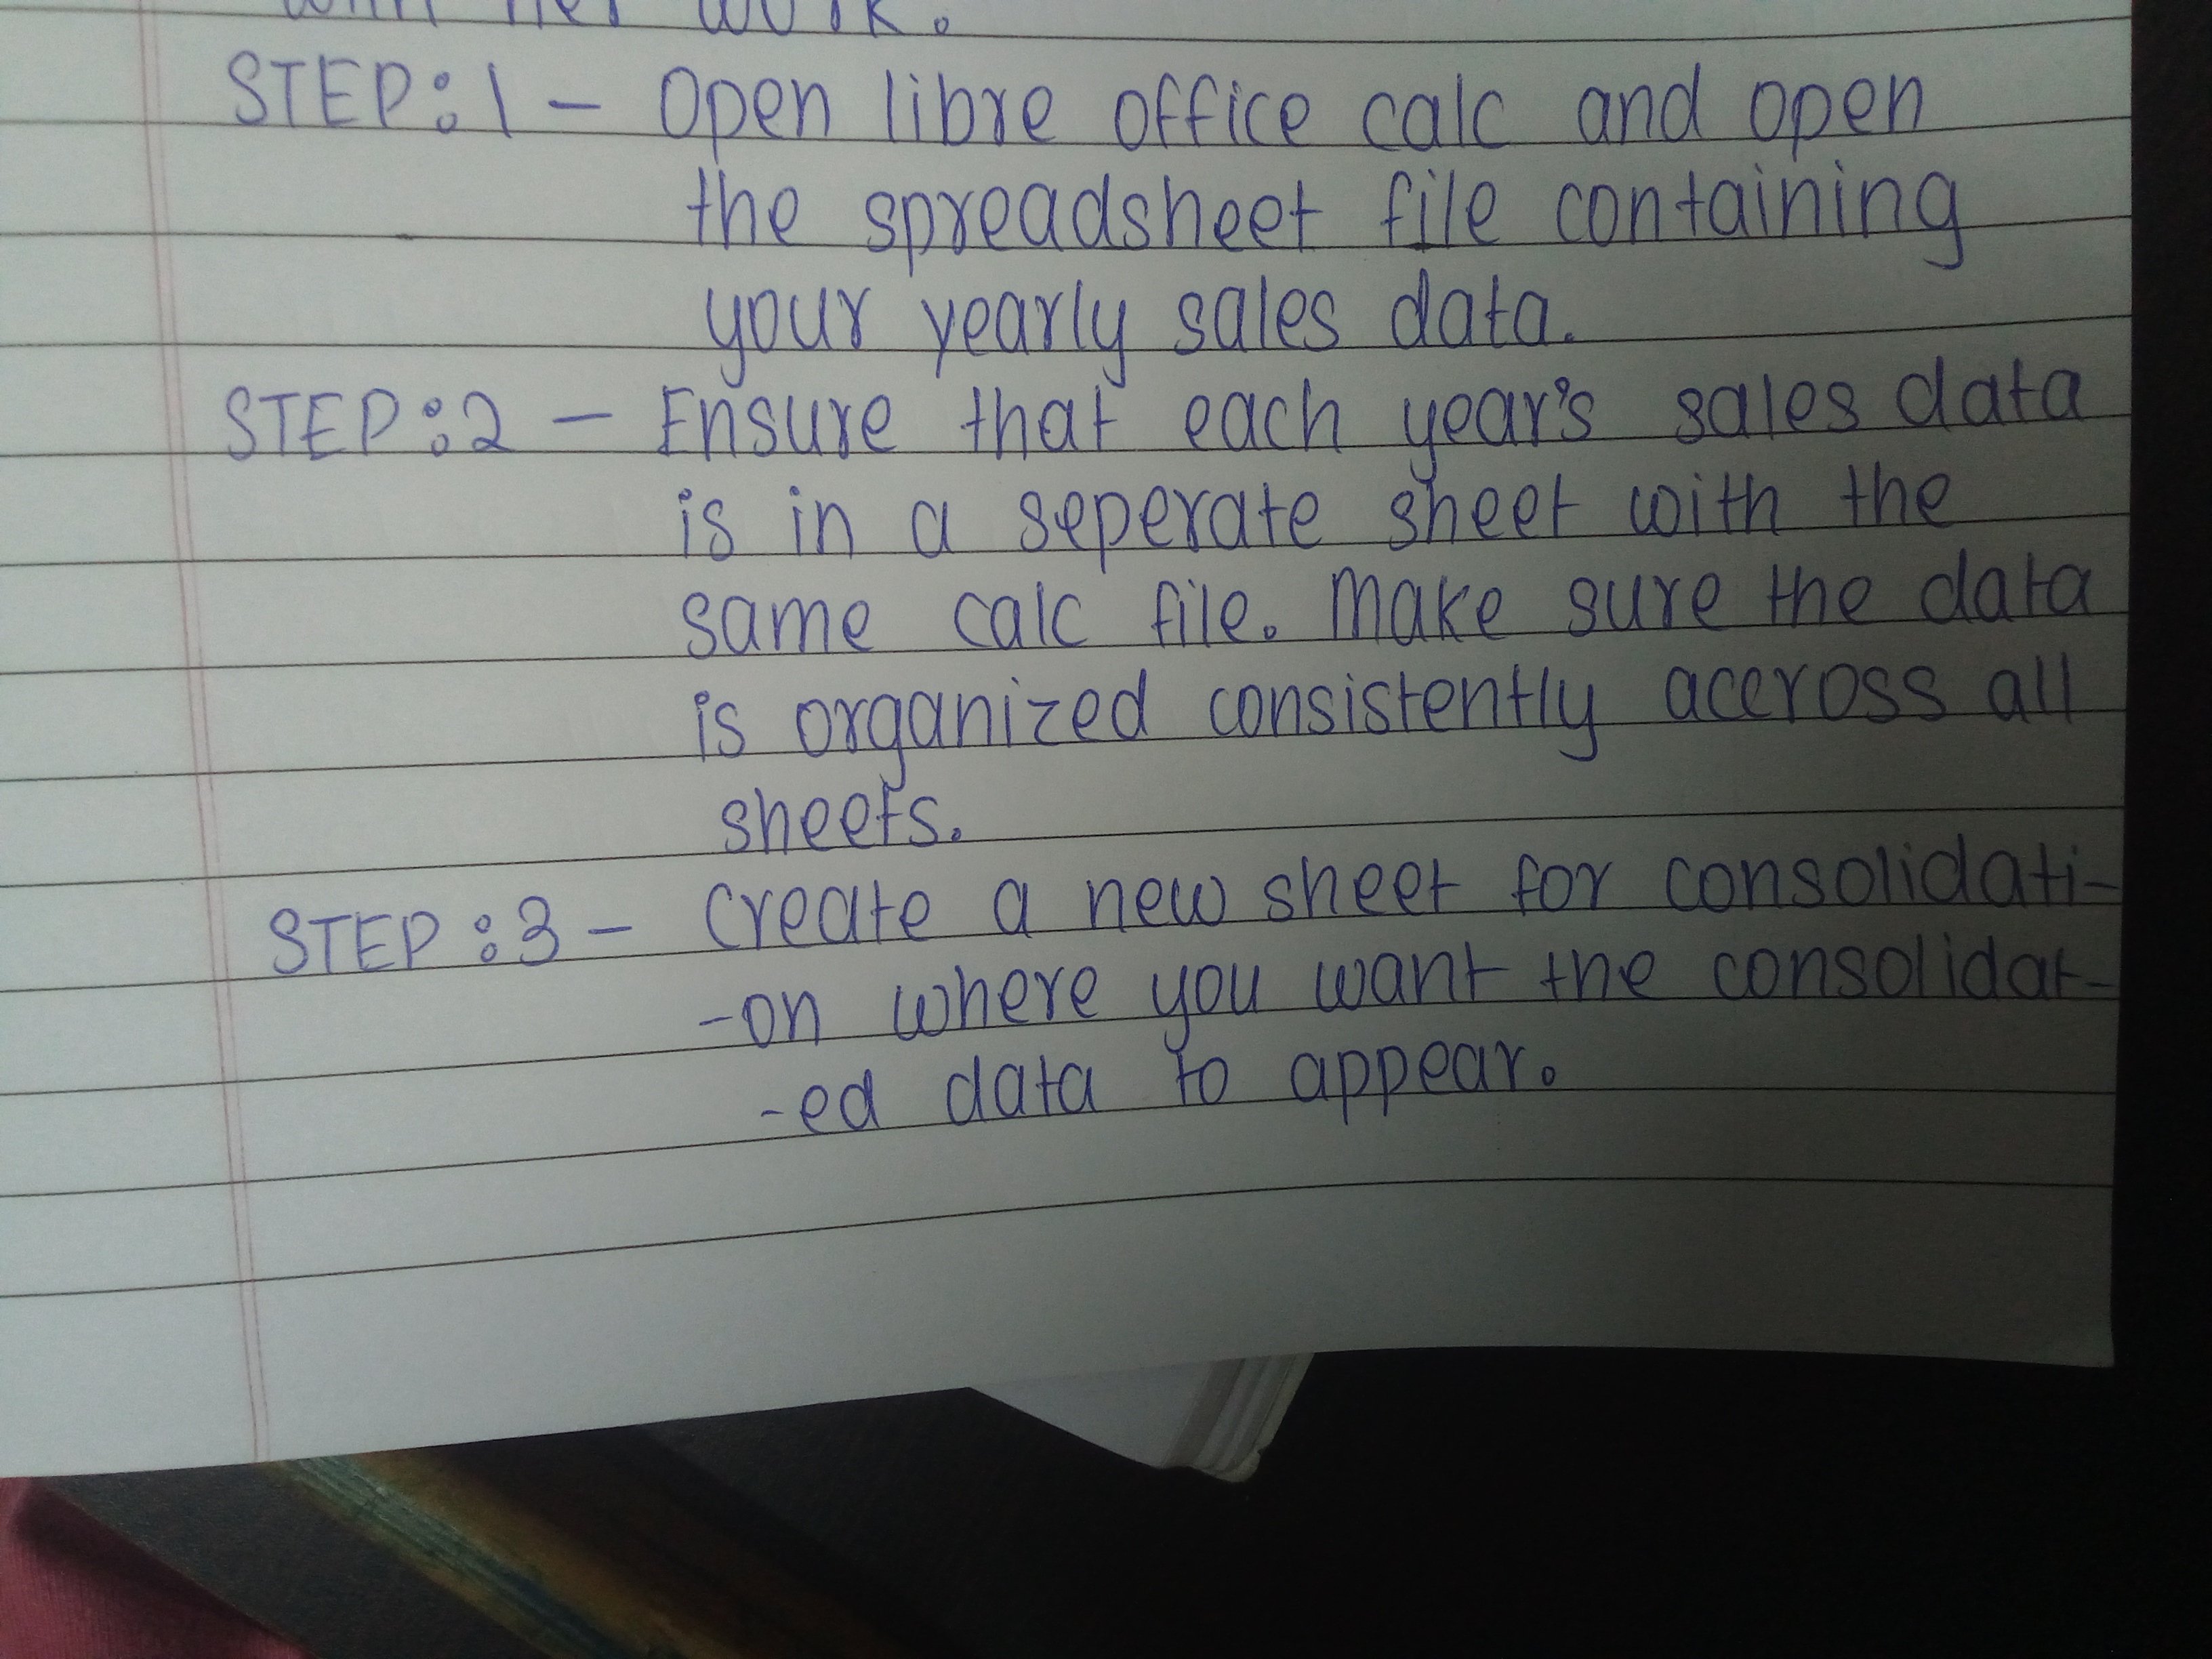 with her work.
STEP:1 - Open libre office calc and open
the spreadsheet file containing
your yearly sales data.
STEP:2 - Ensure that each year's sales data
is in a seperate sheet with the
same calc file. Make sure the data
is organized consistently aceross all
sheets.
STEP:3 - Create a new sheet for consolidati-
-on where you want the consolidat-
-ed data to appear.